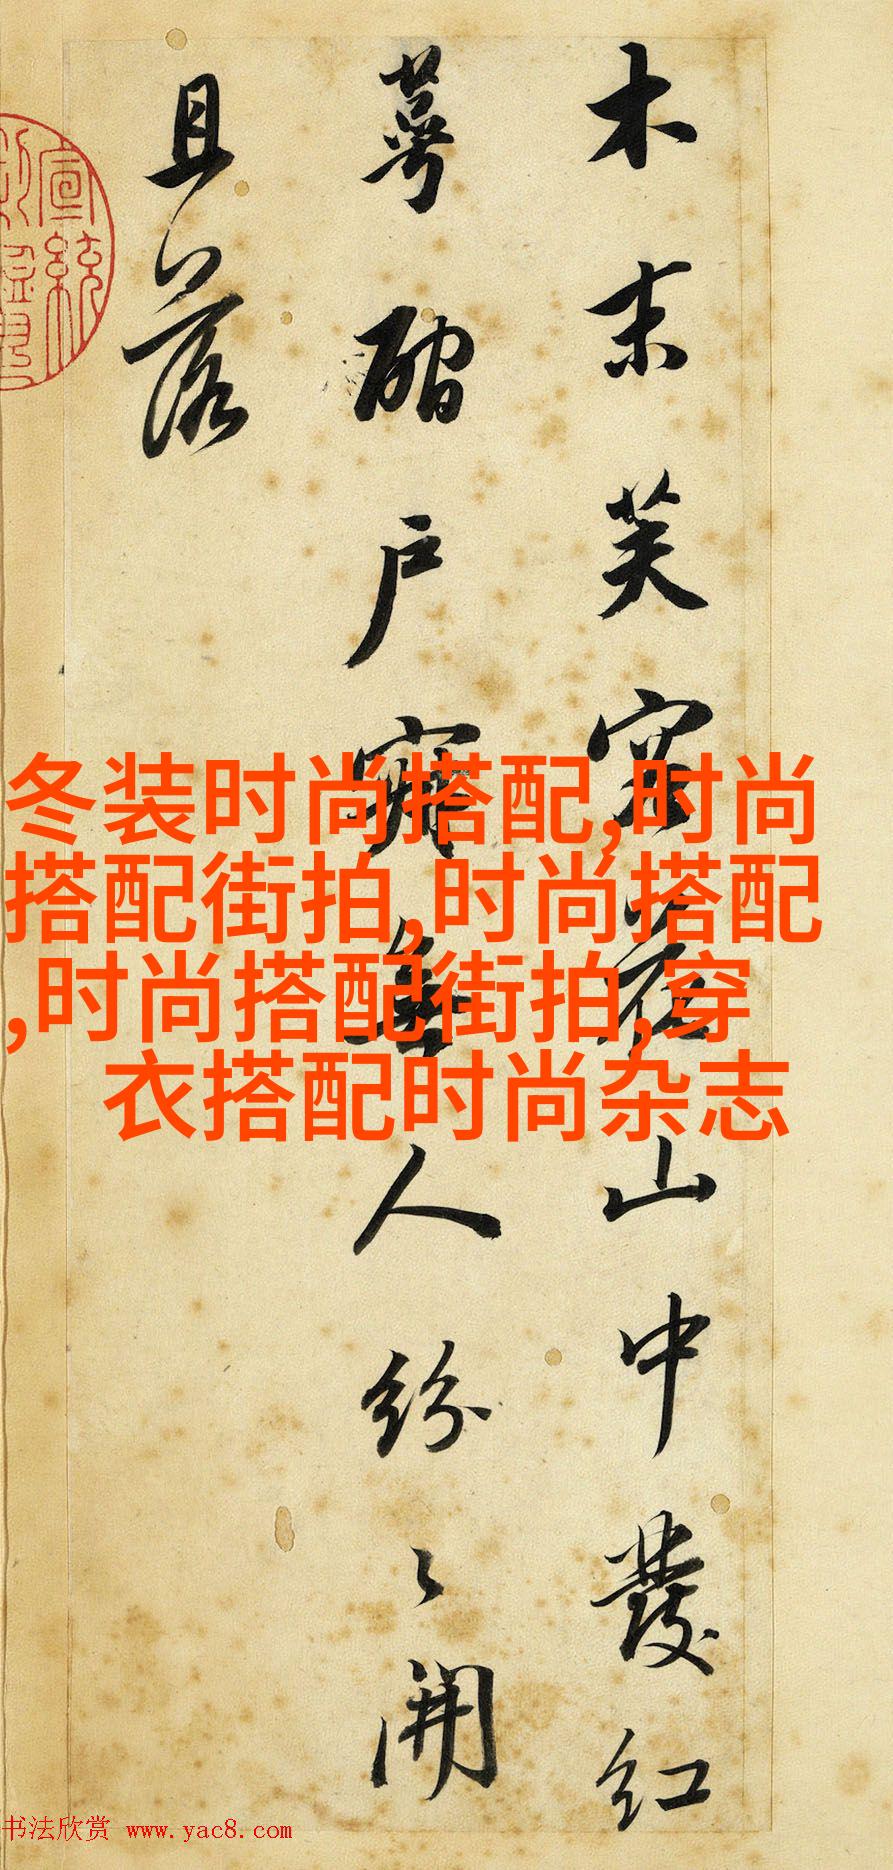 木末芙容花山中發紅
萼磵戶寂無人紛々開
且落
宣統
冬装时尚搭配,时尚
搭配街拍,时尚搭配
,时尚搭配街拍,穿
衣搭配时尚杂志
书法欣赏 www.yac8.com